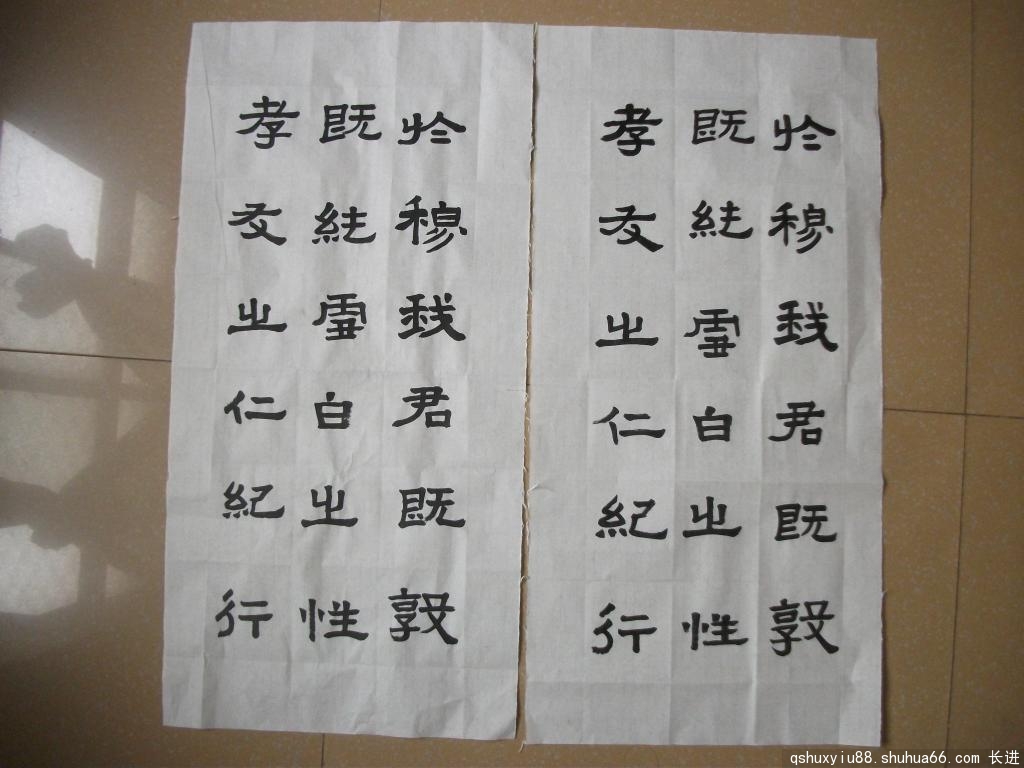 於穆我君既敦
既純雪白之性
孝友之仁紀行
於穆我君既敦
既純雪白之性
孝友之仁紀行
qshuxyiu88.shuhua66.com 长进